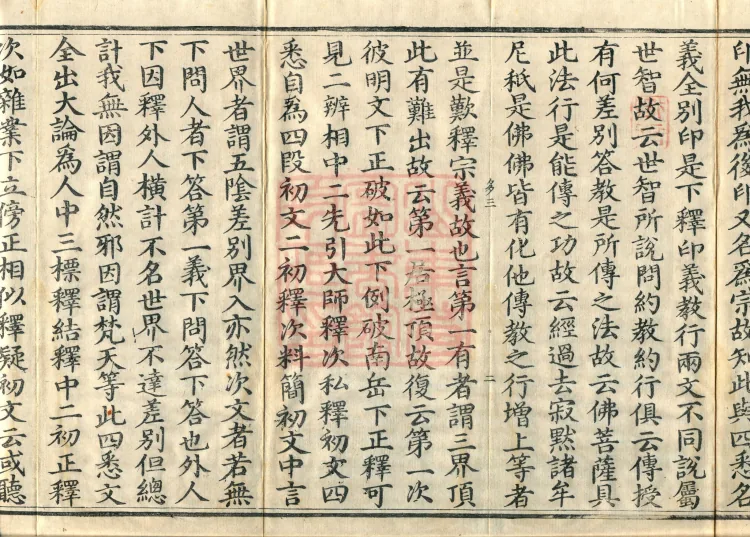 印無我爲後印文名爲宗故知此與四悉名
義全別印是下釋印義教行兩文不同說屬
世智故云世智所說問約教約行俱云傳授
有何差別答教是所傳之法故云佛菩薩具
此法行是能傳之功故云經過去寂默諸牟
尼秖是佛佛皆有化他傳教之行增上等者
並是歎釋宗義故也言第一有者謂三界頂
此有難出故云第一居極頂故復云第一次
彼明文下正破如此下例破南岳下正釋可
見二辨相中二先引大師釋次私釋初文四
悉自爲四段初文二初釋次料簡初文中言
世界者謂五陰差別界入亦然次文者若無
下問人者下答第一義下問答下答也外人
下因釋外人橫計不名世界不達差別但總
計我無因謂自然邪因謂梵天等此四悉文
全出大論爲人中三標釋結釋中二初正釋
次如雜業下立傍正相似釋疑初文云或聽